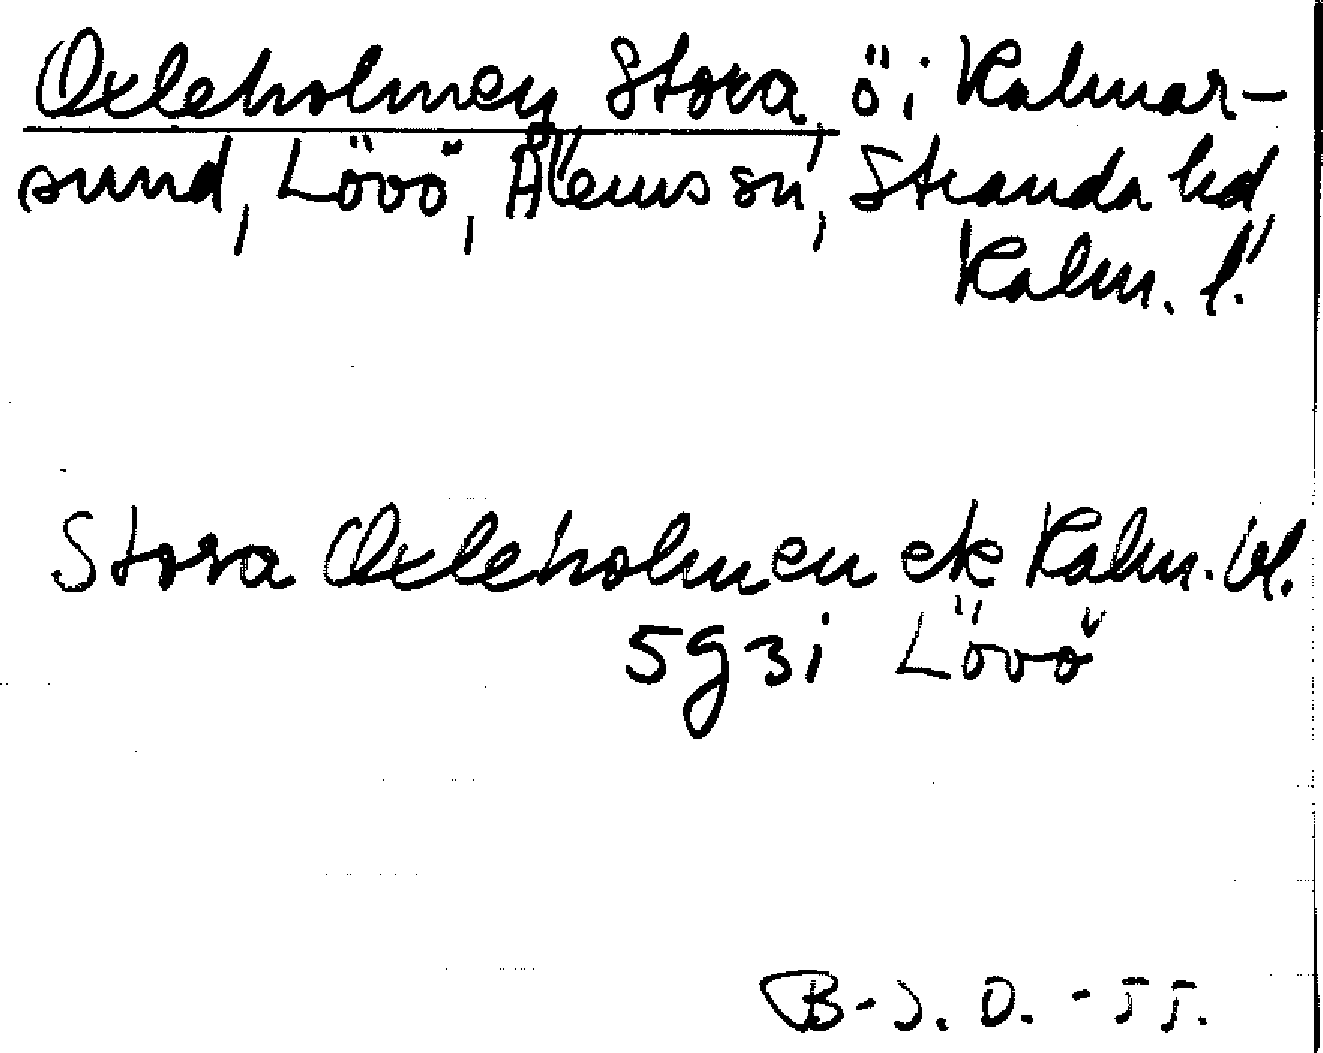 Oxleholmen Stora, ö i Kalmar-
sund, Lövö, Ålems sn, Stranda hd,
Kalm. l.
Stora Oxleholmen ek Kalm. bl.
5g3i Lövö
B-J. O. -55.